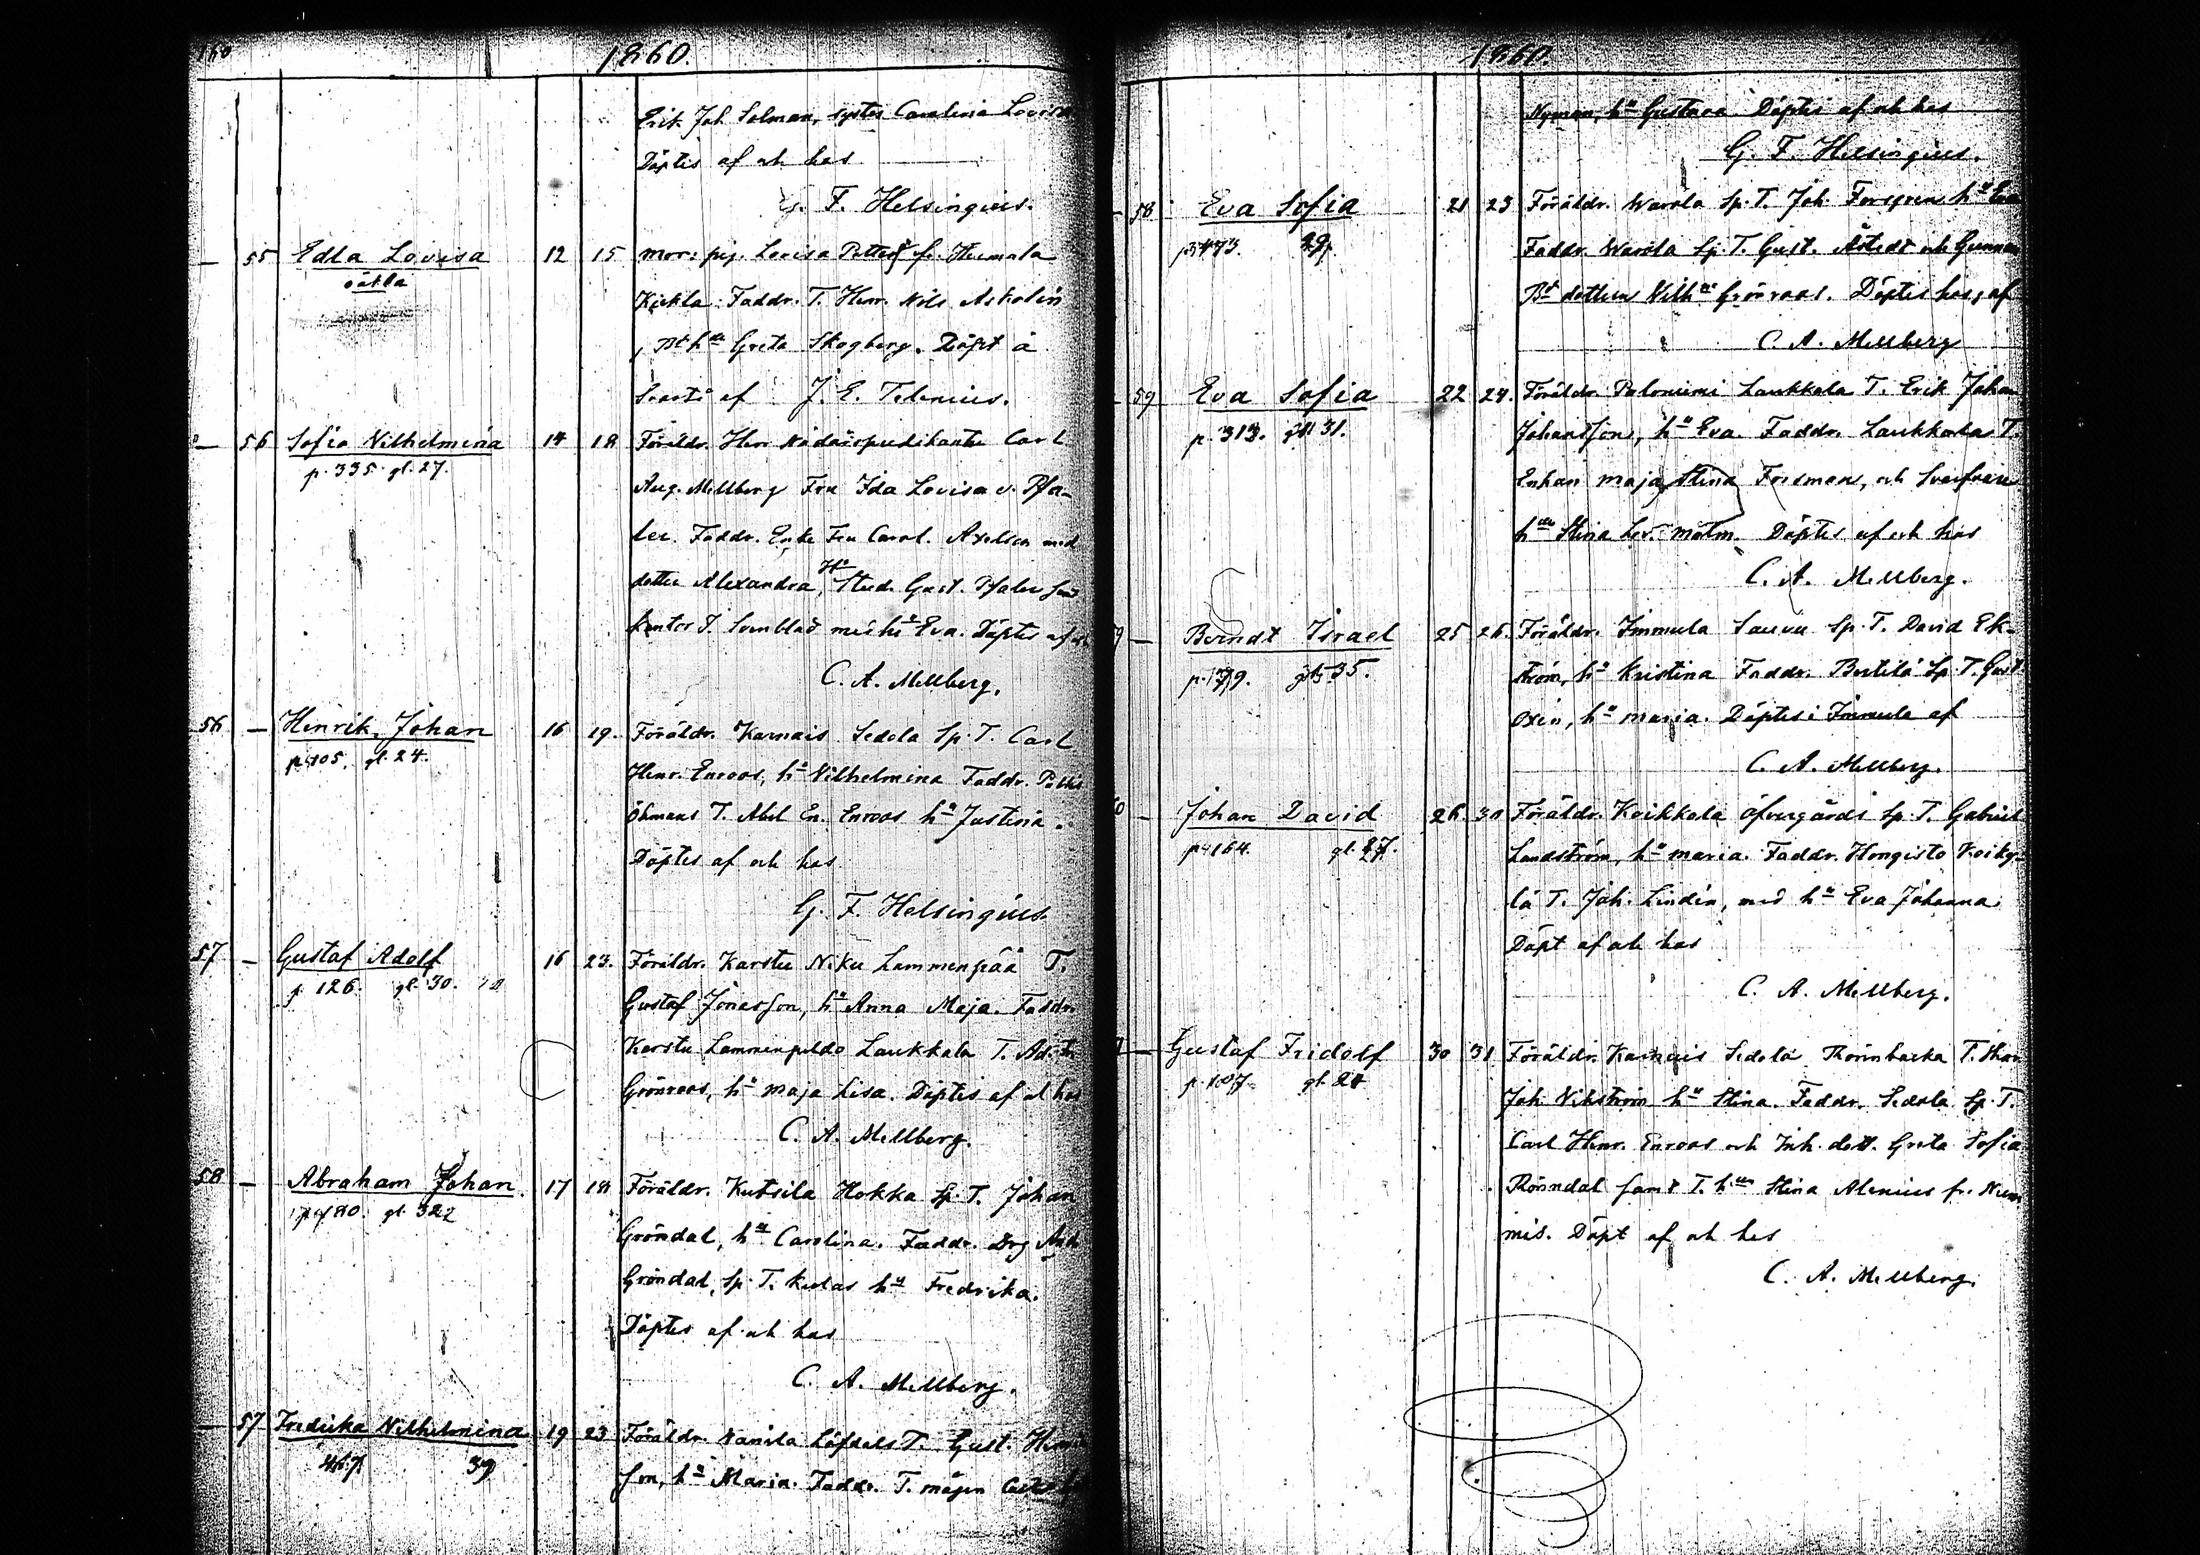 160
1860.
Erik Joh Solman, syster Carolina Lovisa
Döptes af och hos
G. F. Helsingius.
— 55 Edla Lovisa 12 15 Mor: pig. Lovisa Petters fr. Heimola
oäkta
Kiekla Faddr. T. Henr. Nils Askolin
, Bd hu Greta Skogberg. Döpt à
af J. E. Telenius.
— 56 Sofia Vilhelmina 14 18 Föräldr. Herr Nådårspredikanten Carl
p. 335. gl. 27.
Aug. Mellberg Fru Ida Lovisa v. Pfa-
ler. Faddr. Enke Fru Carol. Axelson med
dotter Alexandra, Hr Stud. Gust. Pfaler samt
kantor J. Sunblad med hu Eva. Döptes af
C. A. Mellberg.
56 — Henrik Johan 16 19. Föräldr. Karnais Sedola Sp. T. Carl
p. 105. gl. 24.
Henr. Enroos, hu Vilhelmina Faddr.
Öhmans T. Abel En. Enroos hu Justina.
Döptes af och hos
G. F. Helsingius
57. — Gustaf Adolf 16 23. Föräldr. Karstu Niku Lammenpää T.
p. 126. gl. 30.
Gustaf Jonasson, hu Anna Maja. Faddr.
Karstu Laukkala T.
Grönroos, hu Maja Lisa. Döptes af och hos
C. A. Mellberg.
58 — Abraham Johan. 17 18 Föräldr. Kutsila Hokka Sp. T. Johan
Gröndal, hu Carolina. Faddr. Drg And
Gröndal, Sp. T. hu Fredrika.
Döptes af och hos
C. A. Mellberg.
— 57 Fredrika Vilhelmina 19 23 Föräldr. Vanila Löfdals T. Gust. Henrik
39
son, hu Maria. Faddr. T.
1860.
Nyman, hu Gustava Döptes af och hos
G. F. Helsingius.
— 58 Eva Sofia 21 23 Föräldr. Warola Sp. T. Joh. Forsgren hu Eva
29.
Faddr. Warola Sp. T. Gust. Åstedt och Gunnar
Bd dottern Vilh. Grönroos. Döptes hos, af
C. A. Mellberg
— 59 Eva Sofia 22 24. Föräldr. Palonumi Laukkala T. Erik Johan
p. 313. gl. 31.
Johansson, hu Eva. Faddr. Laukkala T.
Enkan Maja Stina Forsman, och
hu Stina Lov. Malm. Döptes af och hos
C. A. Mellberg.
— Berndt Israel 25 26. Föräldr. Immula Sauvu Sp. T. David Ek-
35.
ström, hu Kristina Faddr. Bertilä Sp. T. Gust
Oxén, hu Maria. Döptes i Immula af
C. A. Mellberg.
— Johan David 26 30 Föräldr. Koikkala Öfvergårds Sp. T. Gabriel
p. 164. gl. 27.
Landström, hu Maria. Faddr. Hongisto Koiky-
lä T. Joh. Lindén, med hu Eva Johanna.
Döpt af och hos
C. A. Mellberg.
— Gustaf Fridolf 30 31 Föräldr. Karnais Sedola Rönnbacka T.
p. 107. gl. 24
Joh. Vikström hu Stina. Faddr. Sedola Sp. T.
Carl Henr. Enroos och Inh. dott. Greta Sofia
Rönndal samt T. hu Stina Alenius fr. Num
mis. Döpt af och hos
C. A. Mellberg.